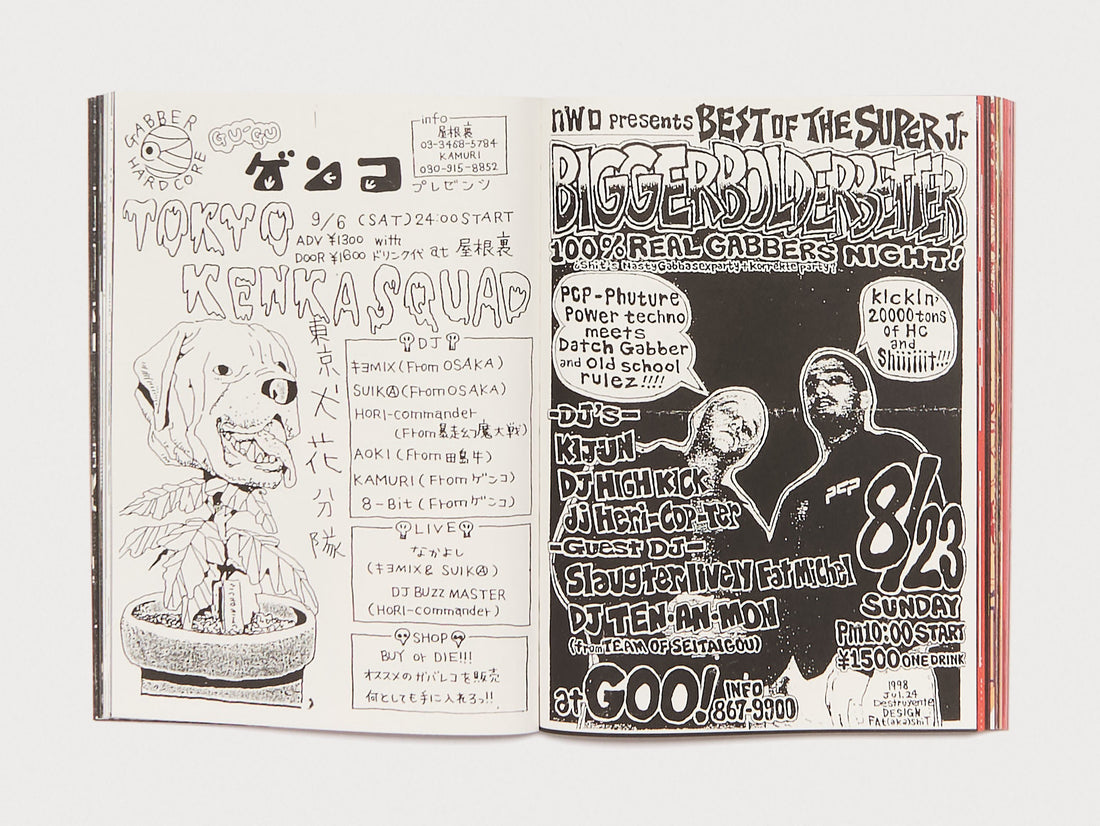 GABBER
HARDCORE
GU-GU
ゲンコ
info
屋根裏
03-3468-5784
KAMURI
030-915-8852
プレゼンツ
TOKYO
9/6 (SAT) 24:00 START
ADV ¥1300 with
DOOR ¥1600 ドリンク代 at 屋根裏
KENKA SQUAD
東京犬花分隊
DJ
キヨMIX (From OSAKA)
SUIKⒶ (From OSAKA)
HORI-commander
(From 暴走幻魔大戦)
AOKI (From 田島牛)
KAMURI (From ゲンコ)
8-Bit (From ゲンコ)
LIVE
なかよし
(キヨMIX & SUIKⒶ)
DJ BUZZ MASTER
(HORI-commander)
SHOP
BUY or DIE!!!
オススメのガバレコを販売
何としても手に入れろっ!!
nWo presents BEST OF THE SUPER Jr
BIGGERBOLDERBETTER
100% REAL GABBERS NIGHT!
PCP-Phuture
Power techno
meets
Datch Gabber
and Old school
rulez!!!!
Kickin'
20000 tons
of HC
and
Shiiiiiit!!!
PCP
-DJ's-
KIJUN
DJ HIGH KICK
dj Heri-Cop-Ter
-Guest DJ-
Slaugter lively Fat Michel
DJ TEN・AN・MON
(from TEAM OF SEITAIGOU)
8/23
SUNDAY
Pm10:00 START
¥1500 ONE DRINK
at GOO! INFO
867-9900
1998
JUL.24
Destruxente
DESIGN